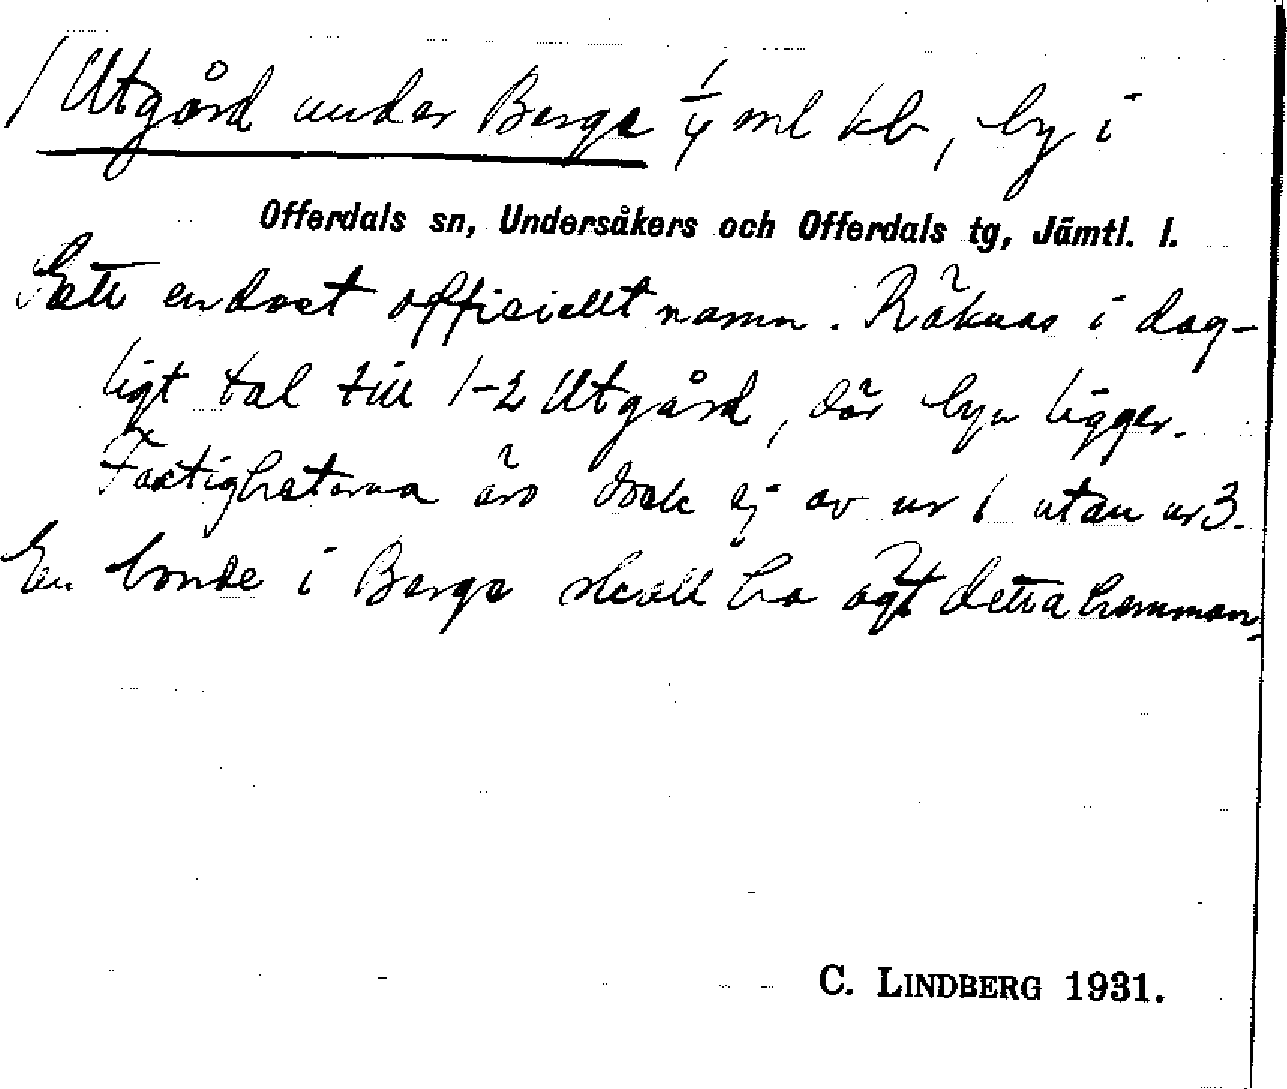 / Utgård under Berge 1/4 ml kb, by i
Offerdals sn, Undersåkers och Offerdals tg, Jämtl. l.
Ett endast officiellt namn. Räknas i dag-
ligt tal till 1-2 Utgård, där byn ligger.
Fastigheterna äro dock ej av nr 1 utan nr 3.
En bonde i Berge skall ha ägt detta hemman.
C. LINDBERG 1931.